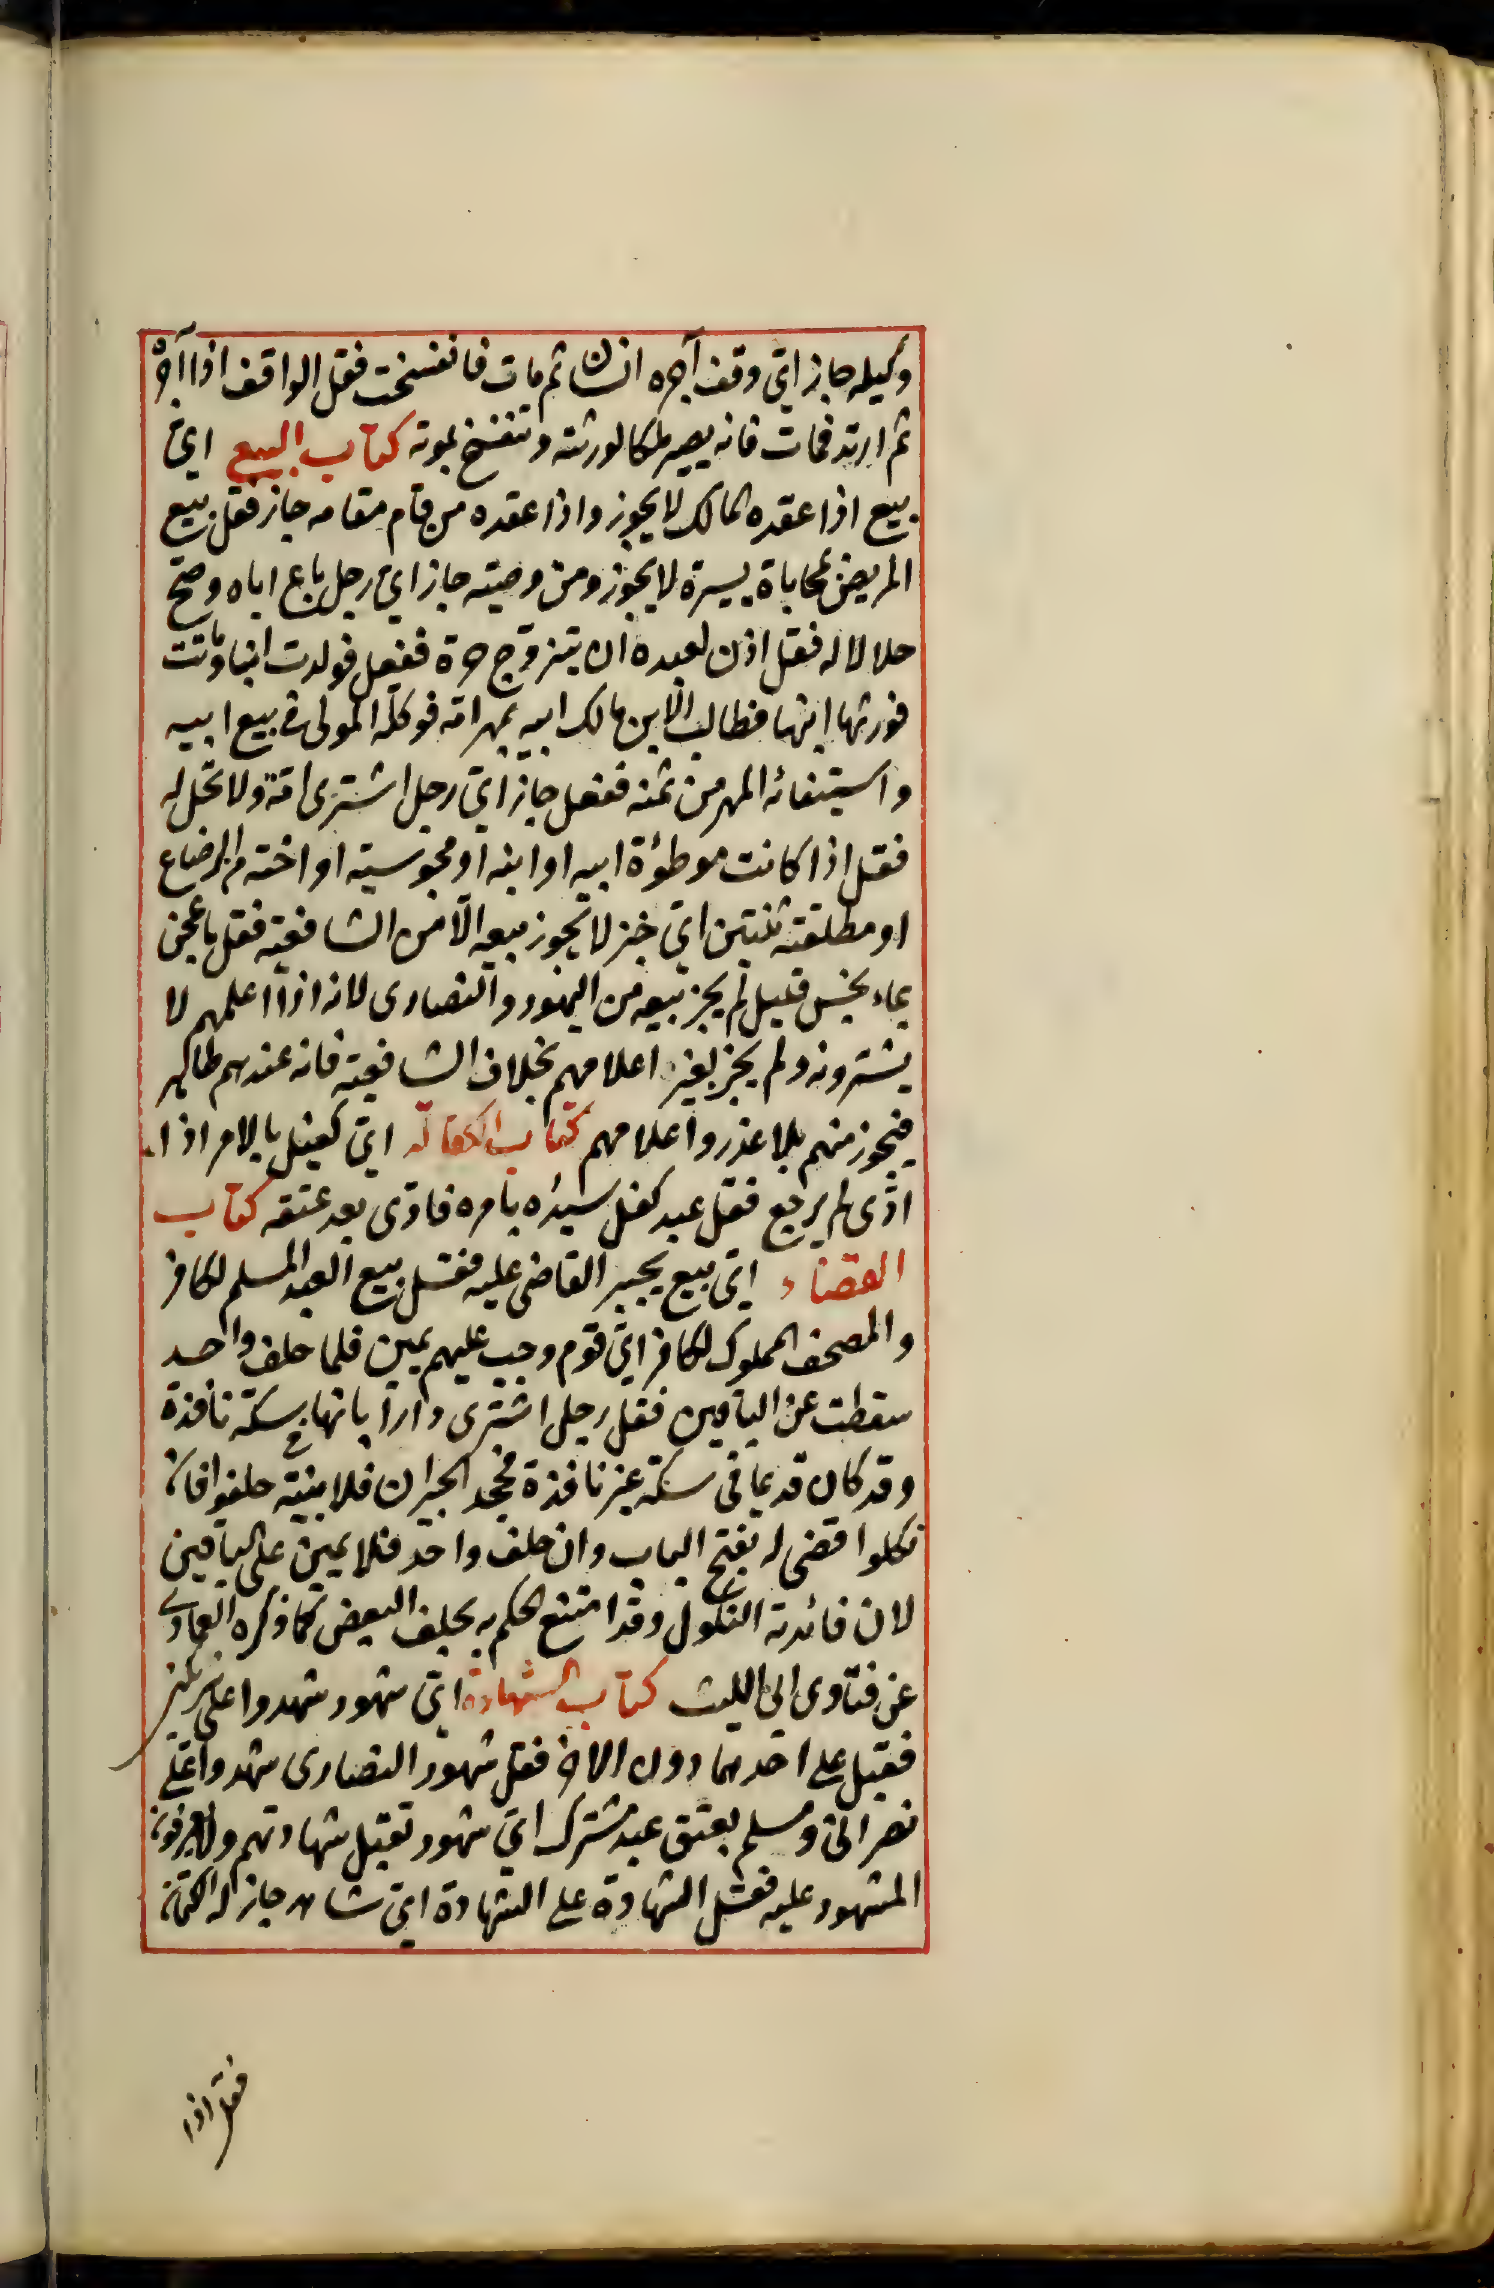 وكيله جاز اى وقف آجره انسان ثم مات فانفسخت فقل الواقف اذا آجره
ثم ارتد فمات فانه يصير ملكا لورثته وتنفسخ بموته كتاب البيع اى
بيع اذا عقده المالك لا يجوز واذا عقده من قام مقامه جاز فقل بيع
المريض بمحاباة يسيرة لا يجوز ومن وصيته جاز اى رجل باع اباه وصح
حلالا له فقل اذن لعبده ان يتزوج حرة ففعل فولدت ابنا وماتت
فورثها ابنها فطالب الابن مالك ابيه بمهر امه فوكله المولى فى بيع ابيه
واستيفائه المهر من ثمنه ففعل جاز اى رجل اشترى امة ولا تحل له
فقل اذا كانت موطوءة ابيه او ابنه او مجوسية او اخته من الرضاع
او مطلقته ثنتين اى خبز لا يجوز بيعه الا من الشافعية فقل ما عجن
بماء نجس قليل لم يجز بيعه من اليهود والنصارى لانه اذا اعلمهم لا
يشترونه ولم يجز بغير اعلامهم بخلاف الشافعية فانه عندهم طاهر
فيجوز منهم بلا عذر واعلامهم كتاب الكفالة اى كفيل بالامر اذا
ادى لم يرجع فقل عبد كفل سيده بامره فادى بعد عتقه كتاب
القضاء اى بيع يجبر القاضى عليه فقل بيع العبد المسلم لكافر
والمصحف المملوك لكافر اى قوم وجب عليهم يمين فلما حلف واحد
سقطت عن الباقين فقل رجل اشترى دارا بابها فى سكة نافذة
وقد كان قديما فى سكة غير نافذة فجحد الجيران فلا بينة حلفوا فان
نكلوا قضى له بفتح الباب وان حلف واحد فلا يمين على الباقين
لان فائدته النكول وقد امتنع الحكم به بحلف البعض كما ذكره العمادى
عن فتاوى ابى الليث كتاب الشهادة اى شهود شهدوا على شريكين
فقبل على احدهما دون الاخر فقل شهود النصارى شهدوا على
نصرانى ومسلم بعتق عبد مشترك اى شهود تقبل شهادتهم ولا يعرفون
المشهود عليه فقل الشهادة على الشهادة اى شاهد جاز له الكتمان
فقل اذا